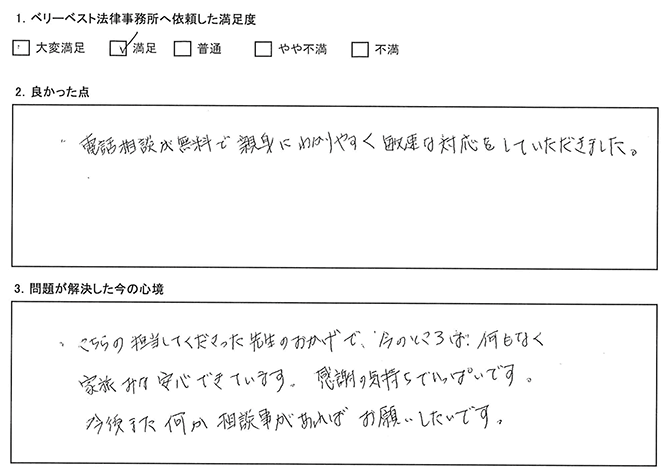 1. ベリーベスト法律事務所へ依頼した満足度
大変満足 満足 普通 やや不満 不満
2. 良かった点
・電話相談が無料で親身にわかりやすく敏速な対応をしていただきました。
3. 問題が解決した今の心境
・こちらの担当してくださった先生のおかげで、今のところは何もなく
家族みな安心できています。感謝の気持ちでいっぱいです。
今後また何か相談事があればお願いしたいです。